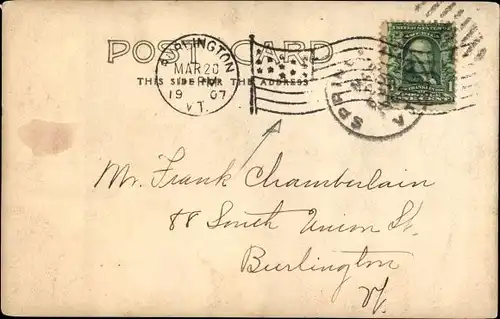 POST CARD
THIS SIDE FOR THE ADDRESS
BURLINGTON
MAR 20
PM
1907
VT.
Mr. Frank Chamberlain
88 South Union St.
Burlington
Vt.